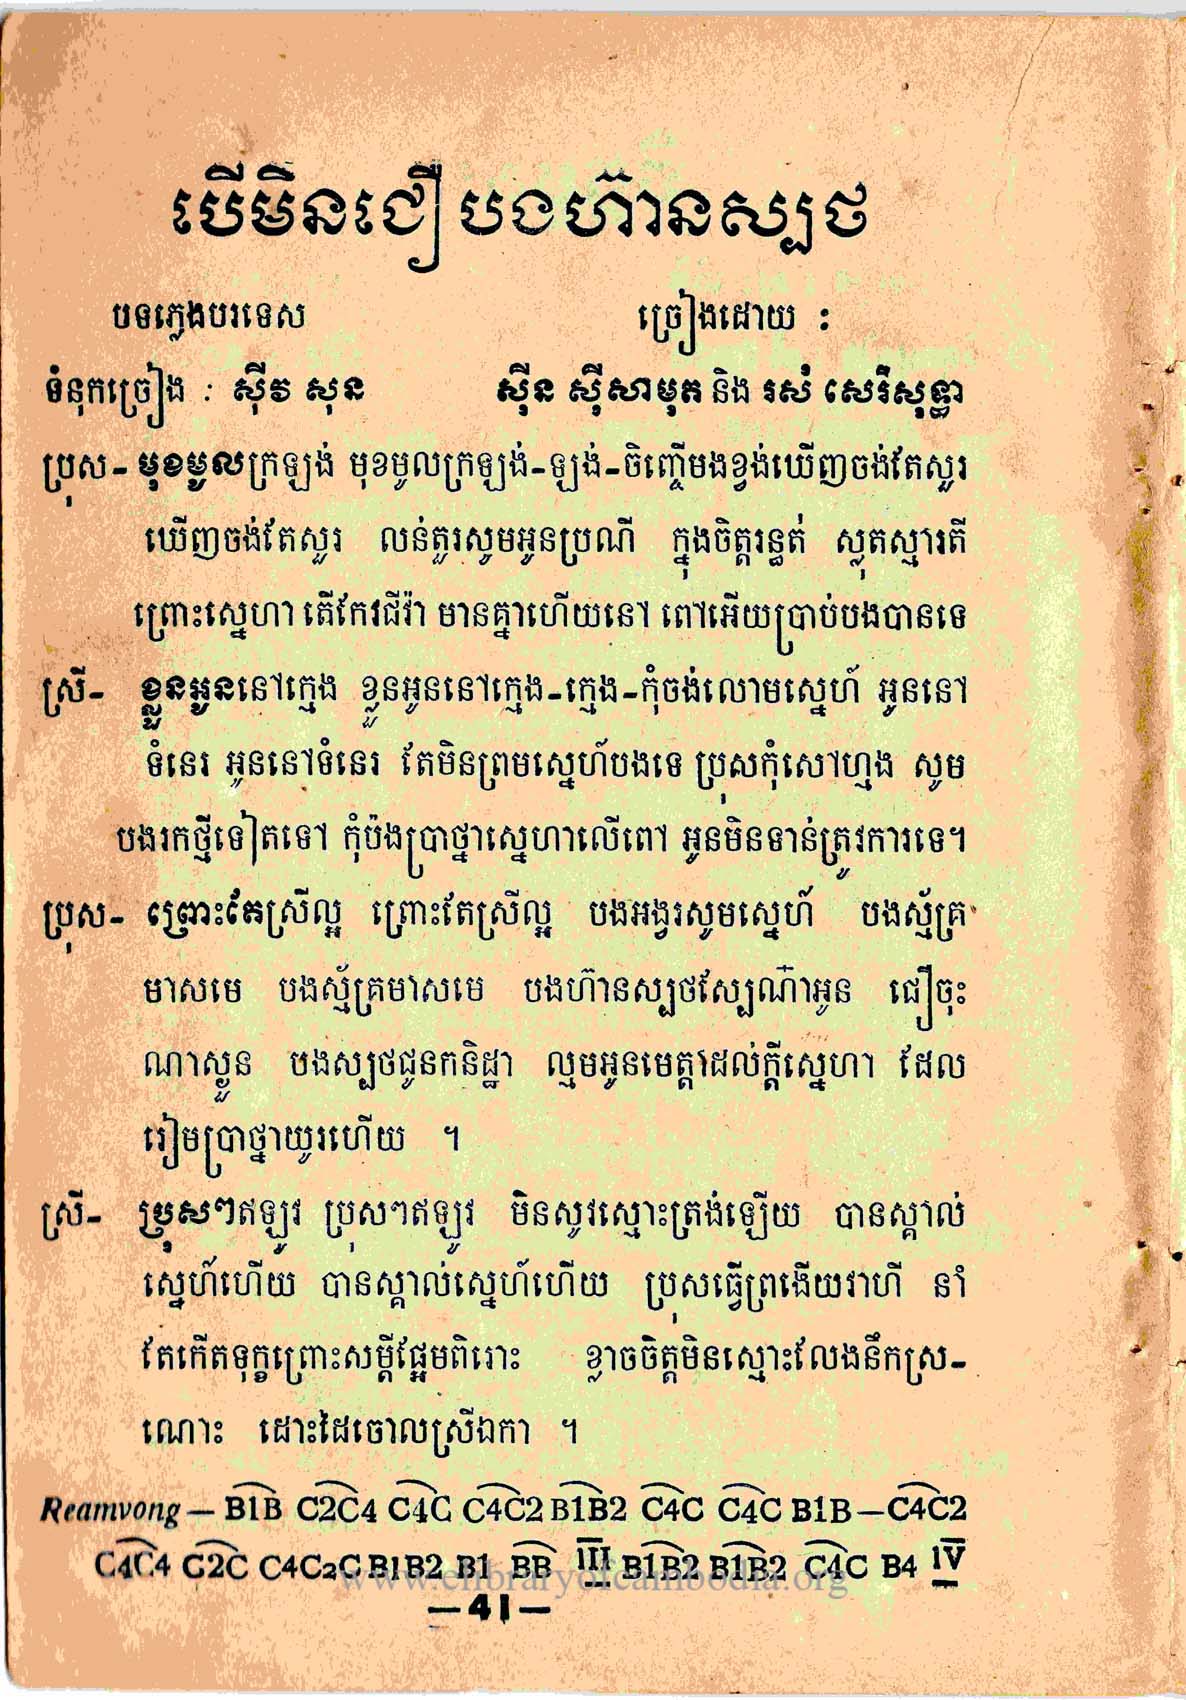 បើមិនជឿ បងហ៊ានស្បថ
បទភ្លេងបរទេស ច្រៀងដោយ :
ទំនុកច្រៀង : ស៊ីវ សុន ស៊ីន ស៊ីសាមុត និង រស់ សេរីសុទ្ធា
ប្រុស - មុខមូលក្រឡង់ មុខមូលក្រឡង់-ឡង់-ចិញ្ចើមងខ្វង់ឃើញចង់តែសួរ
ឃើញចង់តែសួរ លន់តួរសូមអូនប្រណី ក្នុងចិត្តរន្ធត់ ស្លុតស្មារតី
ព្រោះស្នេហា តើកែវជីវ៉ា មានគ្នាហើយនៅ ពៅអើយប្រាប់បងបានទេ
ស្រី - ខ្លួនអូននៅក្មេង ខ្លួនអូននៅក្មេង-ក្មេង-កុំចង់លោមស្នេហ៍ អូននៅ
ទំនេរ អូននៅទំនេរ តែមិនព្រមស្នេហ៍បងទេ ប្រុសកុំសៅហ្មង សូម
បងរកថ្មីទៀតទៅ កុំប៉ងប្រាថ្នាស្នេហាលើពៅ អូនមិនទាន់ត្រូវការទេ។
ប្រុស - ព្រោះតែស្រីល្អ ព្រោះតែស្រីល្អ បងអង្វរសូមស្នេហ៍ បងស្ម័គ្រ
មាសមេ បងស្ម័គ្រមាសមេ បងហ៊ានស្បថស្បែណ៎ាអូន ជឿចុះ
ណាស្ងួន បងស្បថជូនកនិដ្ឋា ល្មមអូនមេត្តាដល់ក្ដីស្នេហា ដែល
រៀមប្រាថ្នាយូរហើយ ។
ស្រី - ប្រុសៗឥឡូវ ប្រុសៗឥឡូវ មិនសូវស្មោះត្រង់ឡើយ បានស្គាល់
ស្នេហ៍ហើយ បានស្គាល់ស្នេហ៍ហើយ ប្រុសធ្វើព្រងើយវាហី នាំ
តែកើតទុក្ខព្រោះសម្ដីផ្អែមពិរោះ ខ្លាចចិត្តមិនស្មោះលែងនឹកស្រ-
ណោះ ដោះដៃចោលស្រីឯកា ។
Reamvong - B1B C2C4 C4C C4C2 B1B2 C4C C4C B1B-C4C2
C4C4 C2C C4C2C B1B2 B1 BB III B1B2 B1B2 C4C B4 IV
www.elibraryofcambodia.org
-41-